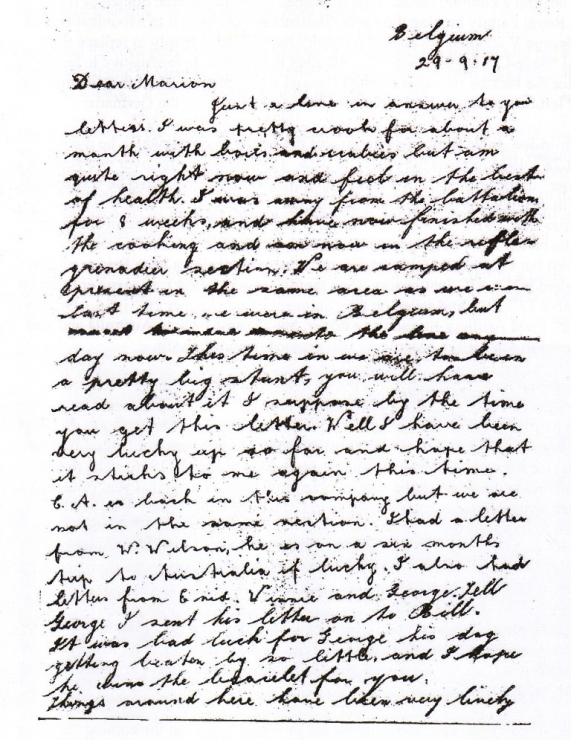 Belgium
29-9-17
Dear Marion
Just a line in answer to you
letters. I was pretty crook for about a
month with boils and scabies but am
quite right now and feel in the best
of health. I was away from the battalion
for 8 weeks, and have now finished with
the cooking and am now in the rifle
grenadier section. We are camped at
present in the same area as we were
last time we were in Belgium, but
to the line any
day now. This time in we are to be in
a pretty big stunt, you will have
read about it I suppose by the time
you get this letter. Well I have been
very lucky up so far and hope that
it sticks to me again this time.
E. A. is back in this company but we are
not in the same section. I had a letter
from W. Wilson, he is on a six months
trip to Australia if lucky. I also had
letters from Enid, Vinnie and George. Tell
George I sent his letter on to Bill.
It was bad luck for George his dog
getting beaten by so little, and I hope
he wins the bracelet for you.
Things around here have been very lively